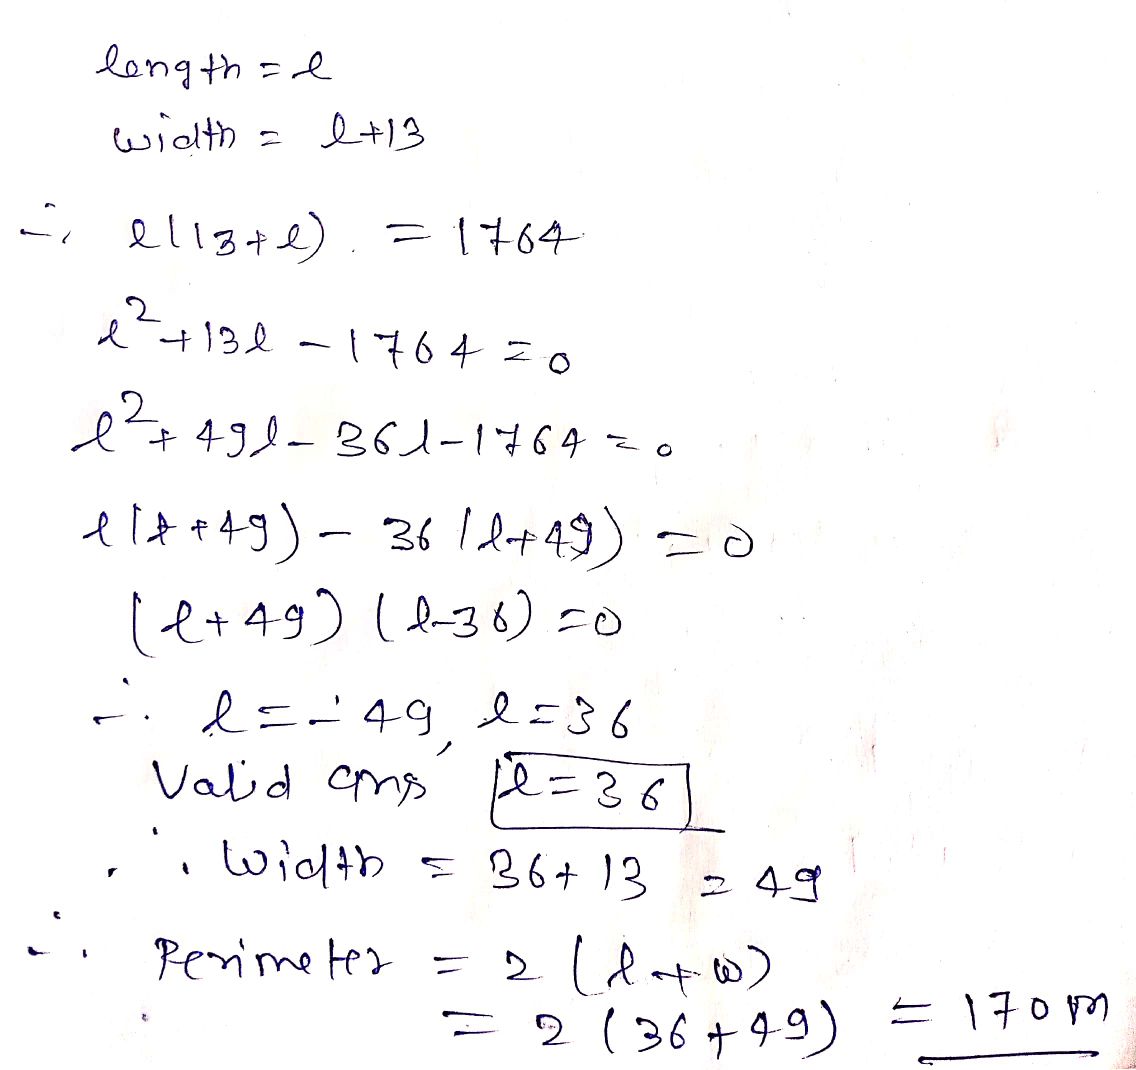 length = l
width = l+13
∴ l(13+l) = 1764
l²+13l - 1764 = 0
l²+ 49l - 36l - 1764 = 0
l(l+49) - 36(l+49) = 0
(l+49) (l-36) = 0
∴ l = -49, l = 36
Valid ans l = 36
∴ Width = 36+13 = 49
∴ Perimeter = 2(l+w)
= 2(36+49) = 170m